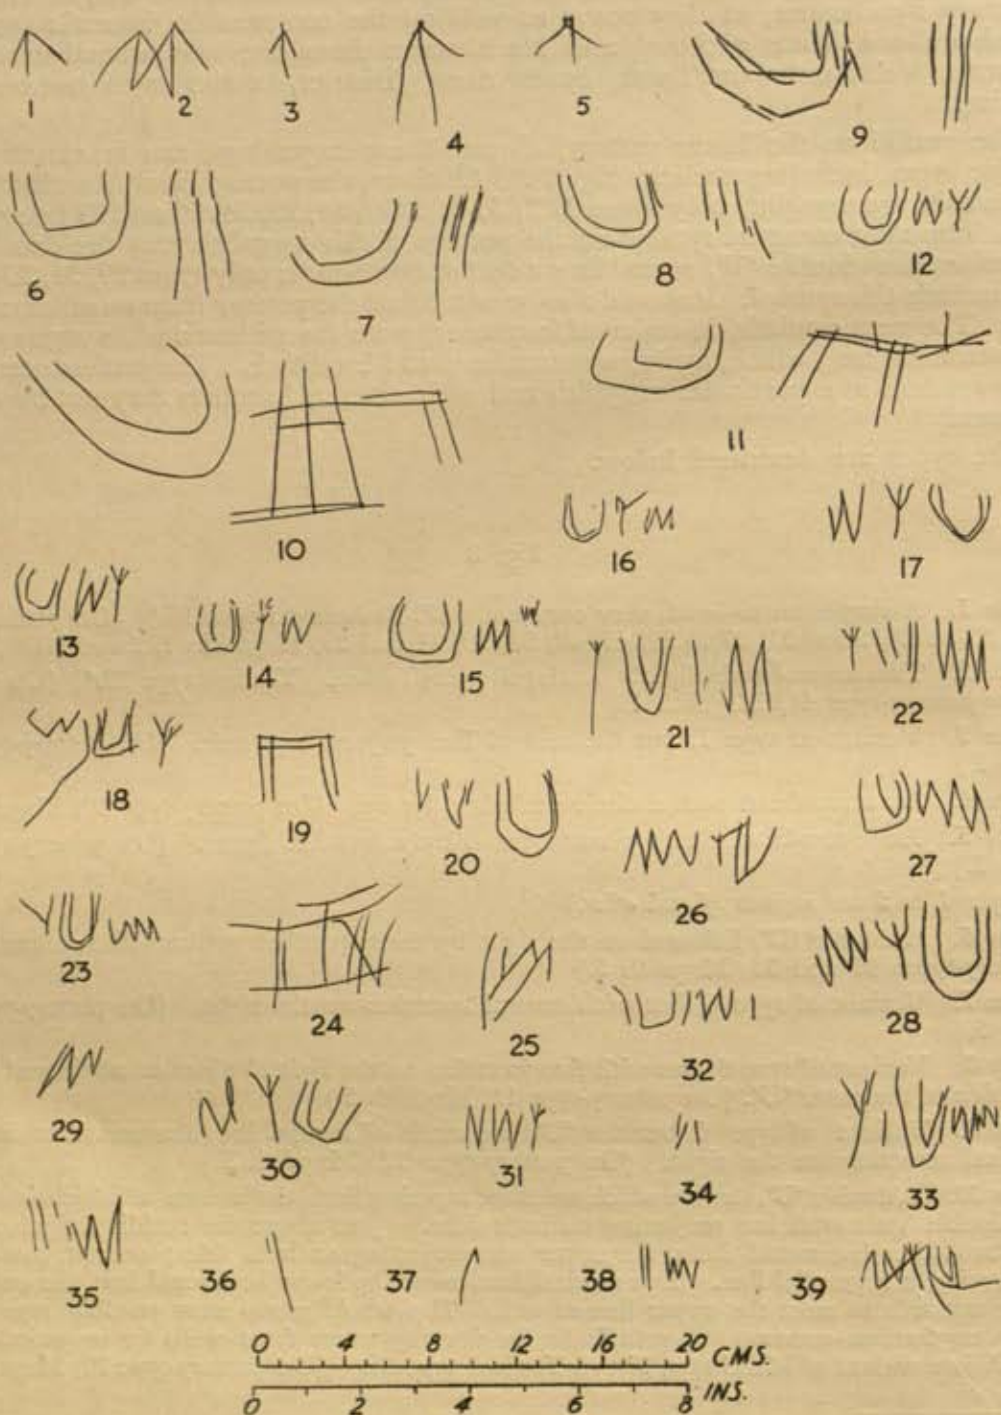 1 2 3 4 5 9
6 7 8 12
10 11
16 17
13 14 15 21 22
18 19 20 26 27
23 24 25 32 28
29 30 31 34 33
35 36 37 38 39
0 4 8 12 16 20 CMS.
0 2 4 6 8 INS.